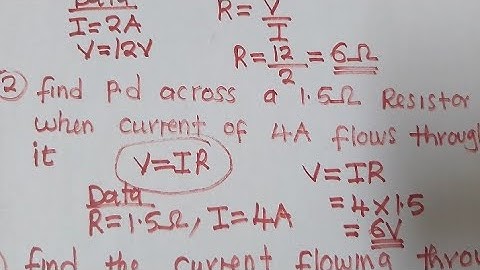 Data
I=2A
V=12V
R=V/I
R=12/2=6Ω
② find Pd across a 1.5Ω Resistor
when current of 4A flows through
it
V=IR
Data
R=1.5Ω, I=4A
V=IR
=4×1.5
=6V
) find the current flowing throu